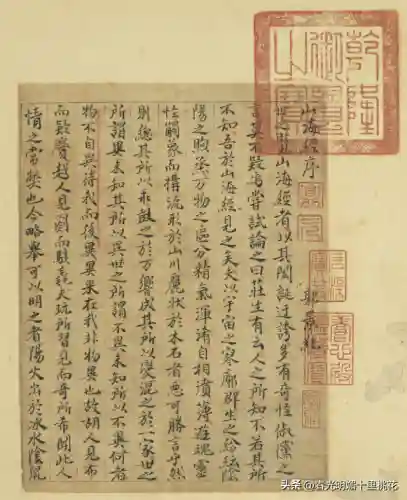 乾隆御覽之寶
山海經序
郭景純
世之覽山海經者以其閎誕迂誇多有奇怪俶儻之
言莫不疑焉嘗試論之曰莊生有云人之所知不若其所
不知吾於山海經見之矣夫以宇宙之寥廓群生之紛紜陰
陽之煦蒸万物之區分精氣渾淆自相濆薄遊魂靈
怪觸象而構流形於山川麗狀於木石者惡可勝言乎然
則總其所以乖鼓之於万響成其所以變混之於一象世之
所謂異未知其所以異世之所謂不異未知所以不異何者
物不自異待我而後異異果在我非物異也故胡人見布
而疑黂越人見罽而駭毳夫玩所習見而奇所希聞此人
情之常蔽也今略舉可以明之者陽火出於冰水陰鼠
头条 @春光明媚十里桃花